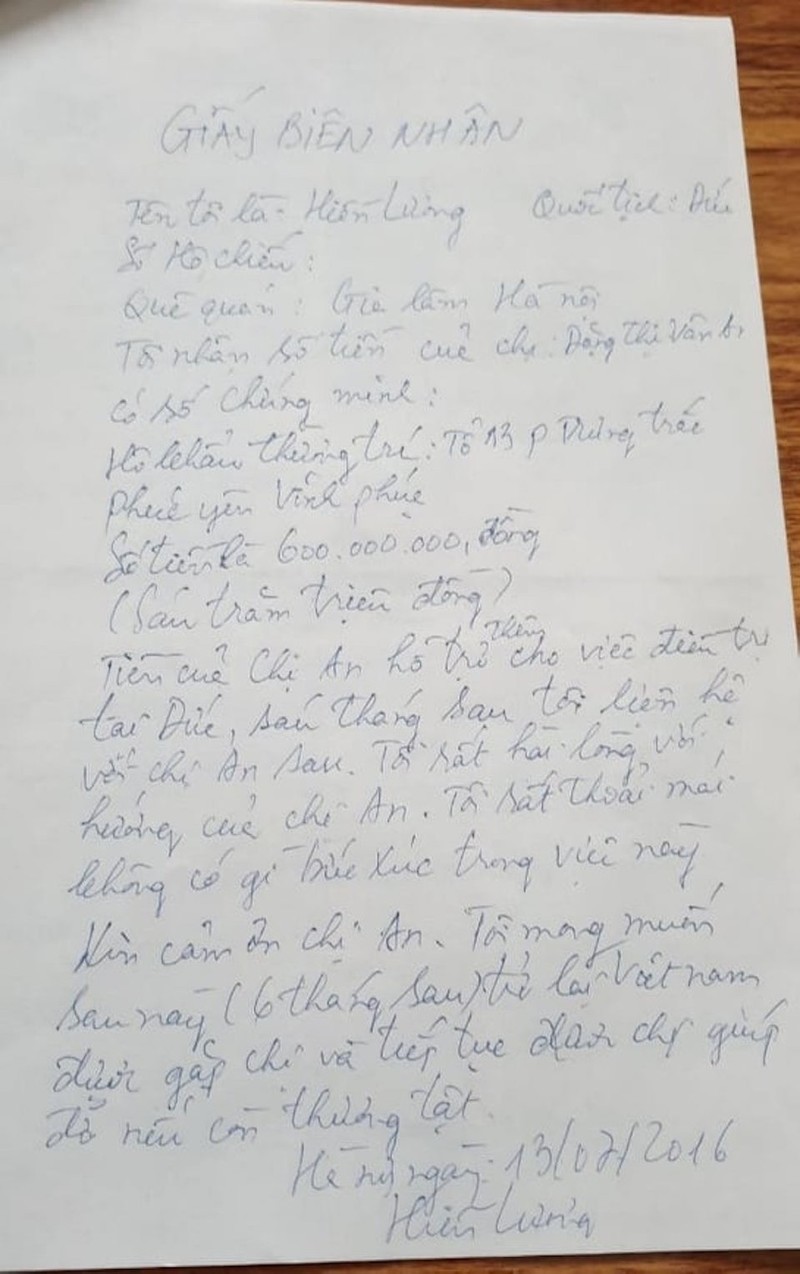 GIẤY BIÊN NHÂN
Tên tôi là: Hiền Lương Quốc tịch: Đức
Số Hộ chiếu:
Quê quán: Gia lâm Hà nội
Tôi nhận số tiền của chị: Đặng Thị Vân An
có số chứng minh:
Hộ khẩu thường trú: Tổ 13 P Trưng trắc
Phúc yên Vĩnh phúc
Số tiền là 600.000.000, đồng
(Sáu trăm triệu đồng)
Tiền của Chị An hỗ trợ thêm cho việc điều trị
tại Đức, sáu tháng sau tôi liên hệ
với chị An sau. Tôi rất hài lòng với
hướng của chị An. Tôi rất thoải mái
không có gì bức xúc trong việc này
Xin cảm ơn chị An. Tôi mong muốn
sau này (6 tháng sau) trở lại Việt nam
được gặp chị và tiếp tục được chị giúp
đỡ nếu còn thương tật.
Hà nội ngày 13/07/2016
Hiền Lương